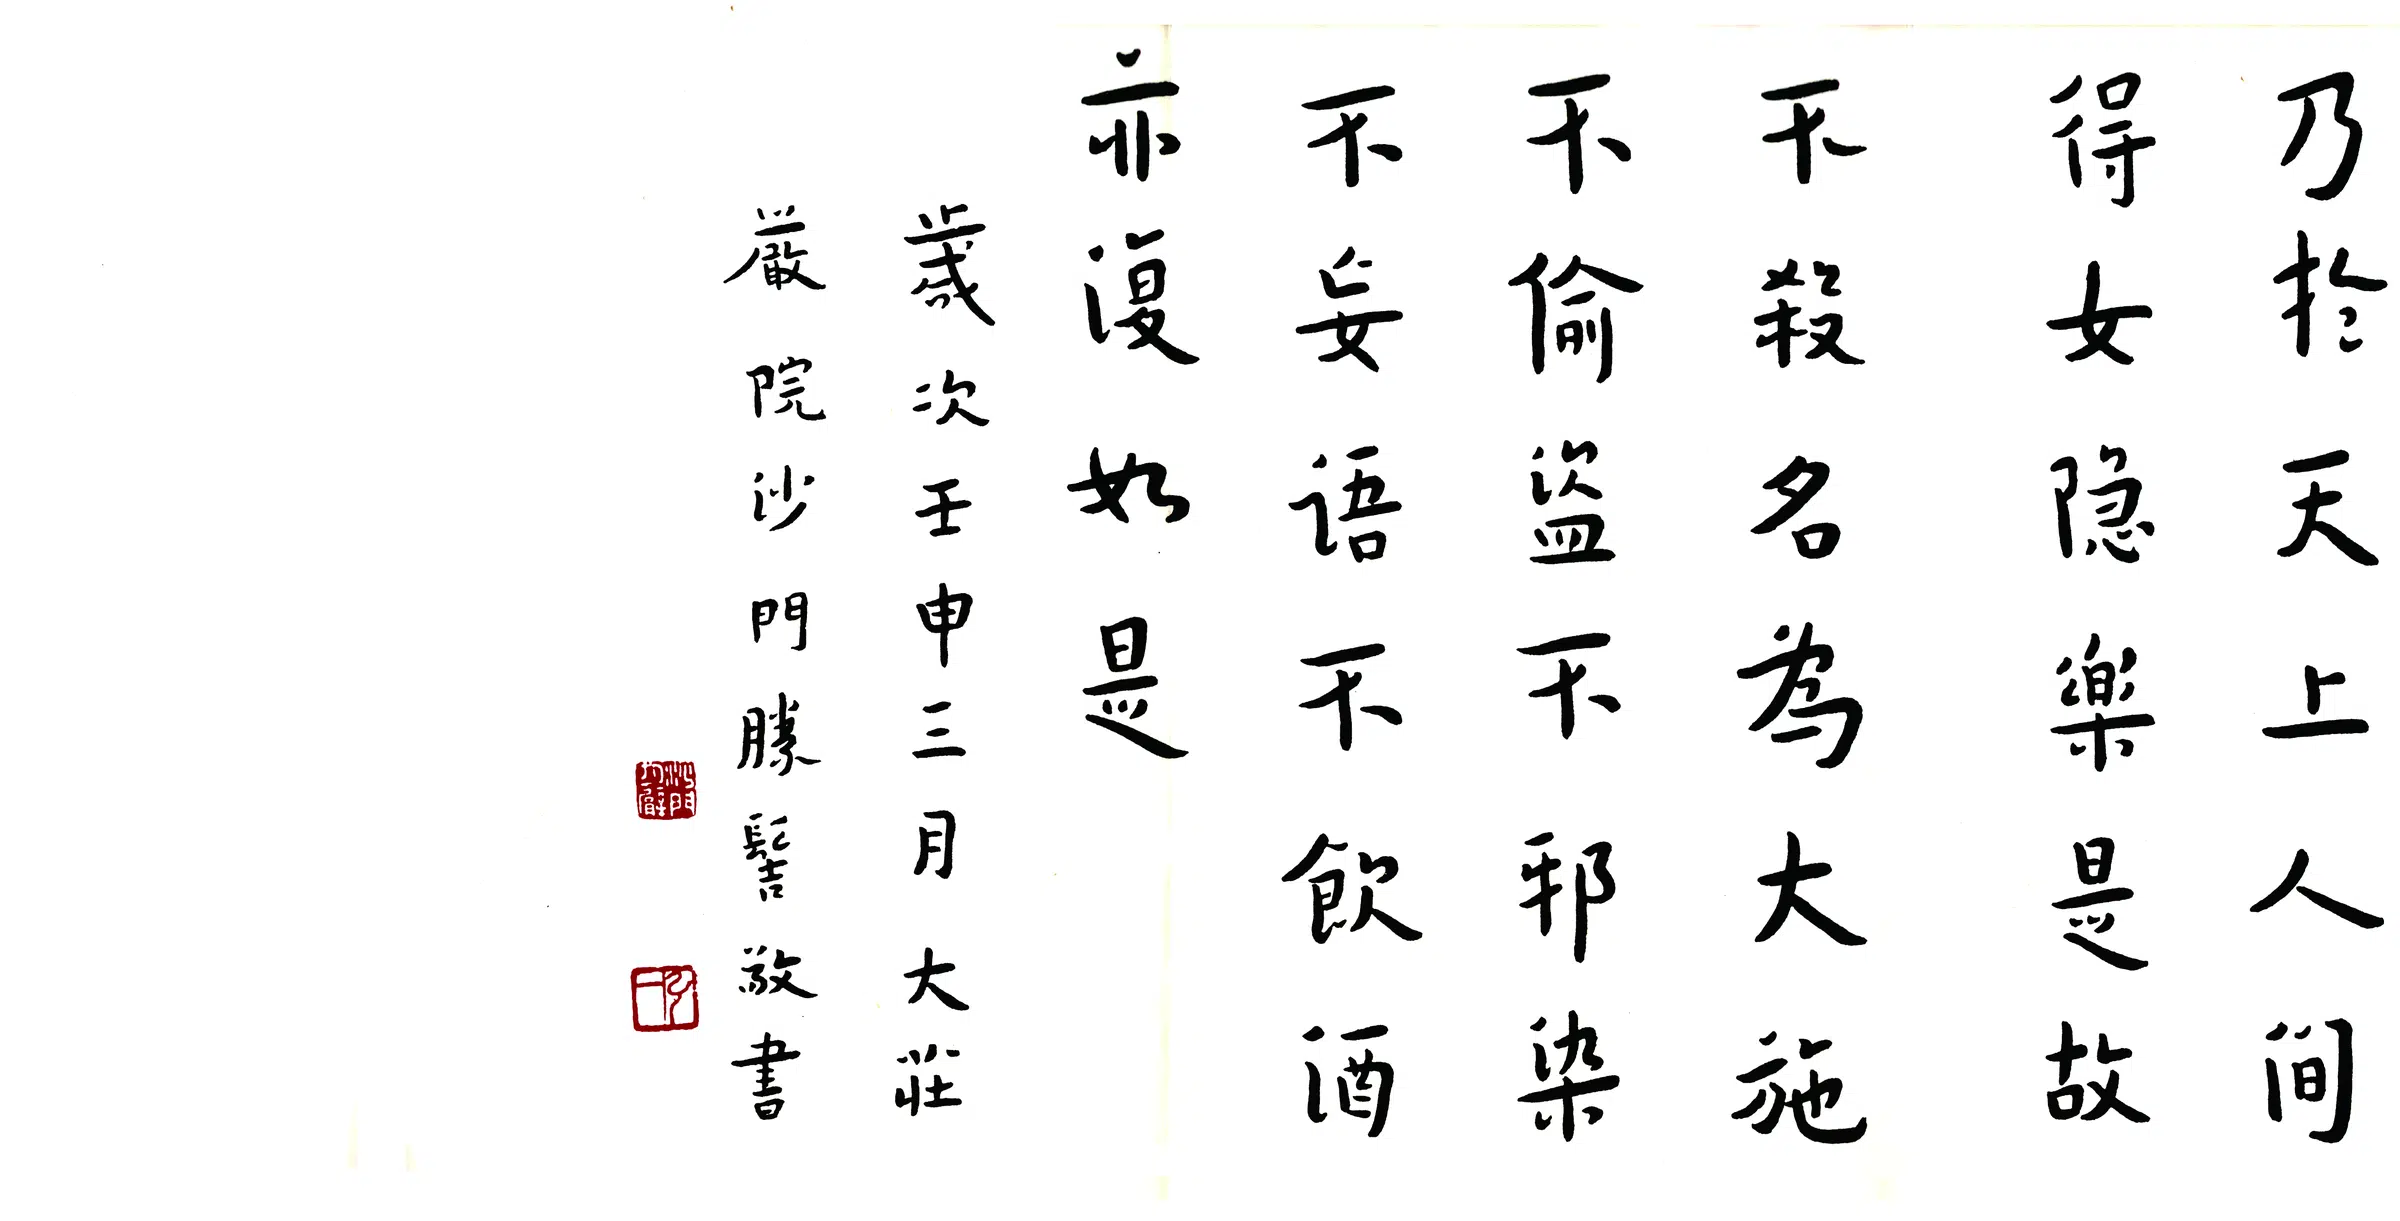 乃於天上人间
得安隐樂是故
不殺名為大施
不偷盜不邪染
不妄语不飲酒
亦復如是
歲次壬申三月大莊
嚴院沙門勝髻敬書